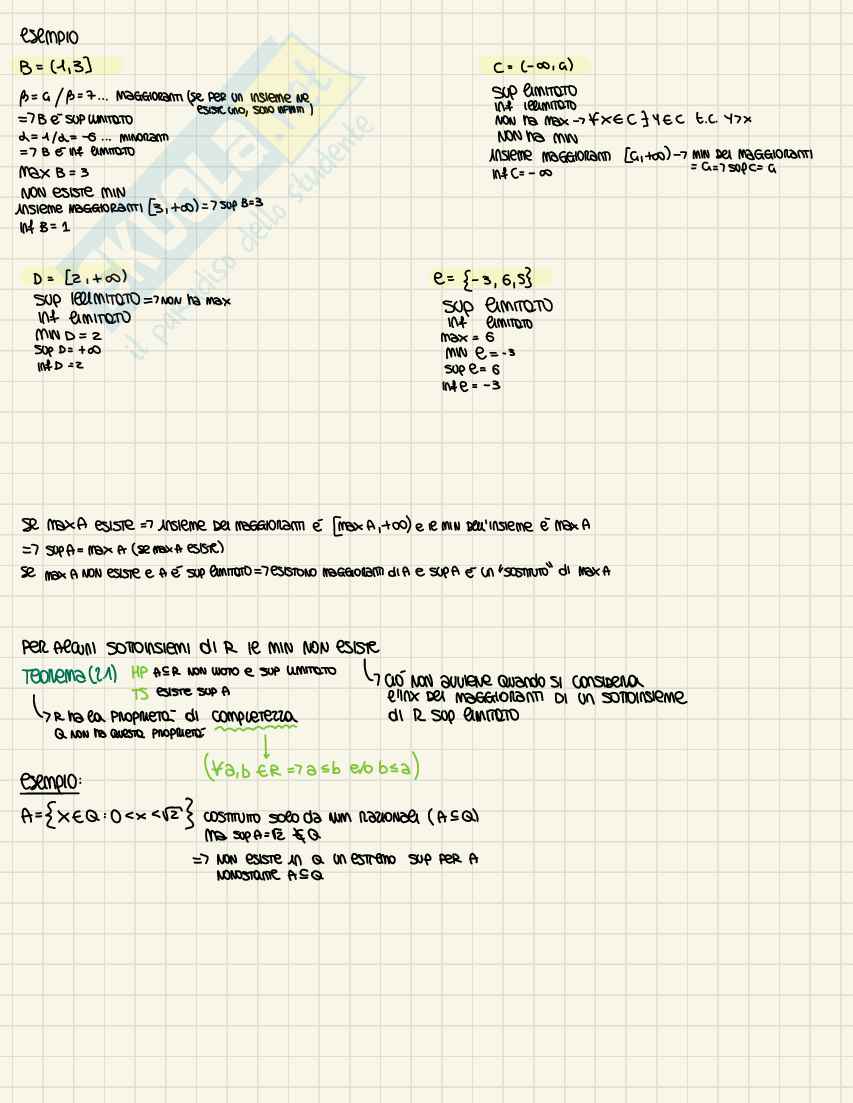 esempio
B = (1,3]
β = 4 / β = 7 ... maggioranti (se per un insieme ne esiste uno, sono infiniti)
=> B è sup limitato
α = 1 / α = -6 ... minoranti
=> B è inf limitato
max B = 3
non esiste min
insieme maggioranti [3, +∞) => sup B = 3
inf B = 1
C = (-∞, 4)
sup limitato
inf illimitato
non ha max -> ∀x∈C ∃y∈C t.c. y>x
non ha min
insieme maggioranti [4, +∞) -> min dei maggioranti
= 4 => sup C = 4
inf C = -∞
D = [2, +∞)
sup illimitato => non ha max
inf limitato
min D = 2
sup D = +∞
inf D = 2
E = {-3, 6, 5}
sup limitato
inf limitato
max = 6
min E = -3
sup E = 6
inf E = -3
se max A esiste => insieme dei maggioranti è [max A, +∞) e il min dell'insieme è max A
=> sup A = max A (se max A esiste)
se max A non esiste e A è sup limitato => esistono maggioranti di A e sup A è un "sostituto" di max A
per alcuni sottoinsiemi di R il min non esiste
↳ ciò non avviene quando si considera
l'inx dei maggioranti di un sottoinsieme
di R sup limitato
Teorema (2.1) HP A⊆R non vuoto e sup limitato
TS esiste sup A
↳ R ha la proprietà di completezza
Q non ha questa proprietà
(∀a,b ∈R => a≤b e/o b≤a)
esempio:
A = {x∈Q : 0<x<√2} costituito solo da num razionali (A⊆Q)
ma sup A = √2 ∉ Q
=> non esiste in Q un estremo sup per A
nonostante A⊆Q
SKUOLA.net
il paradiso dello studente